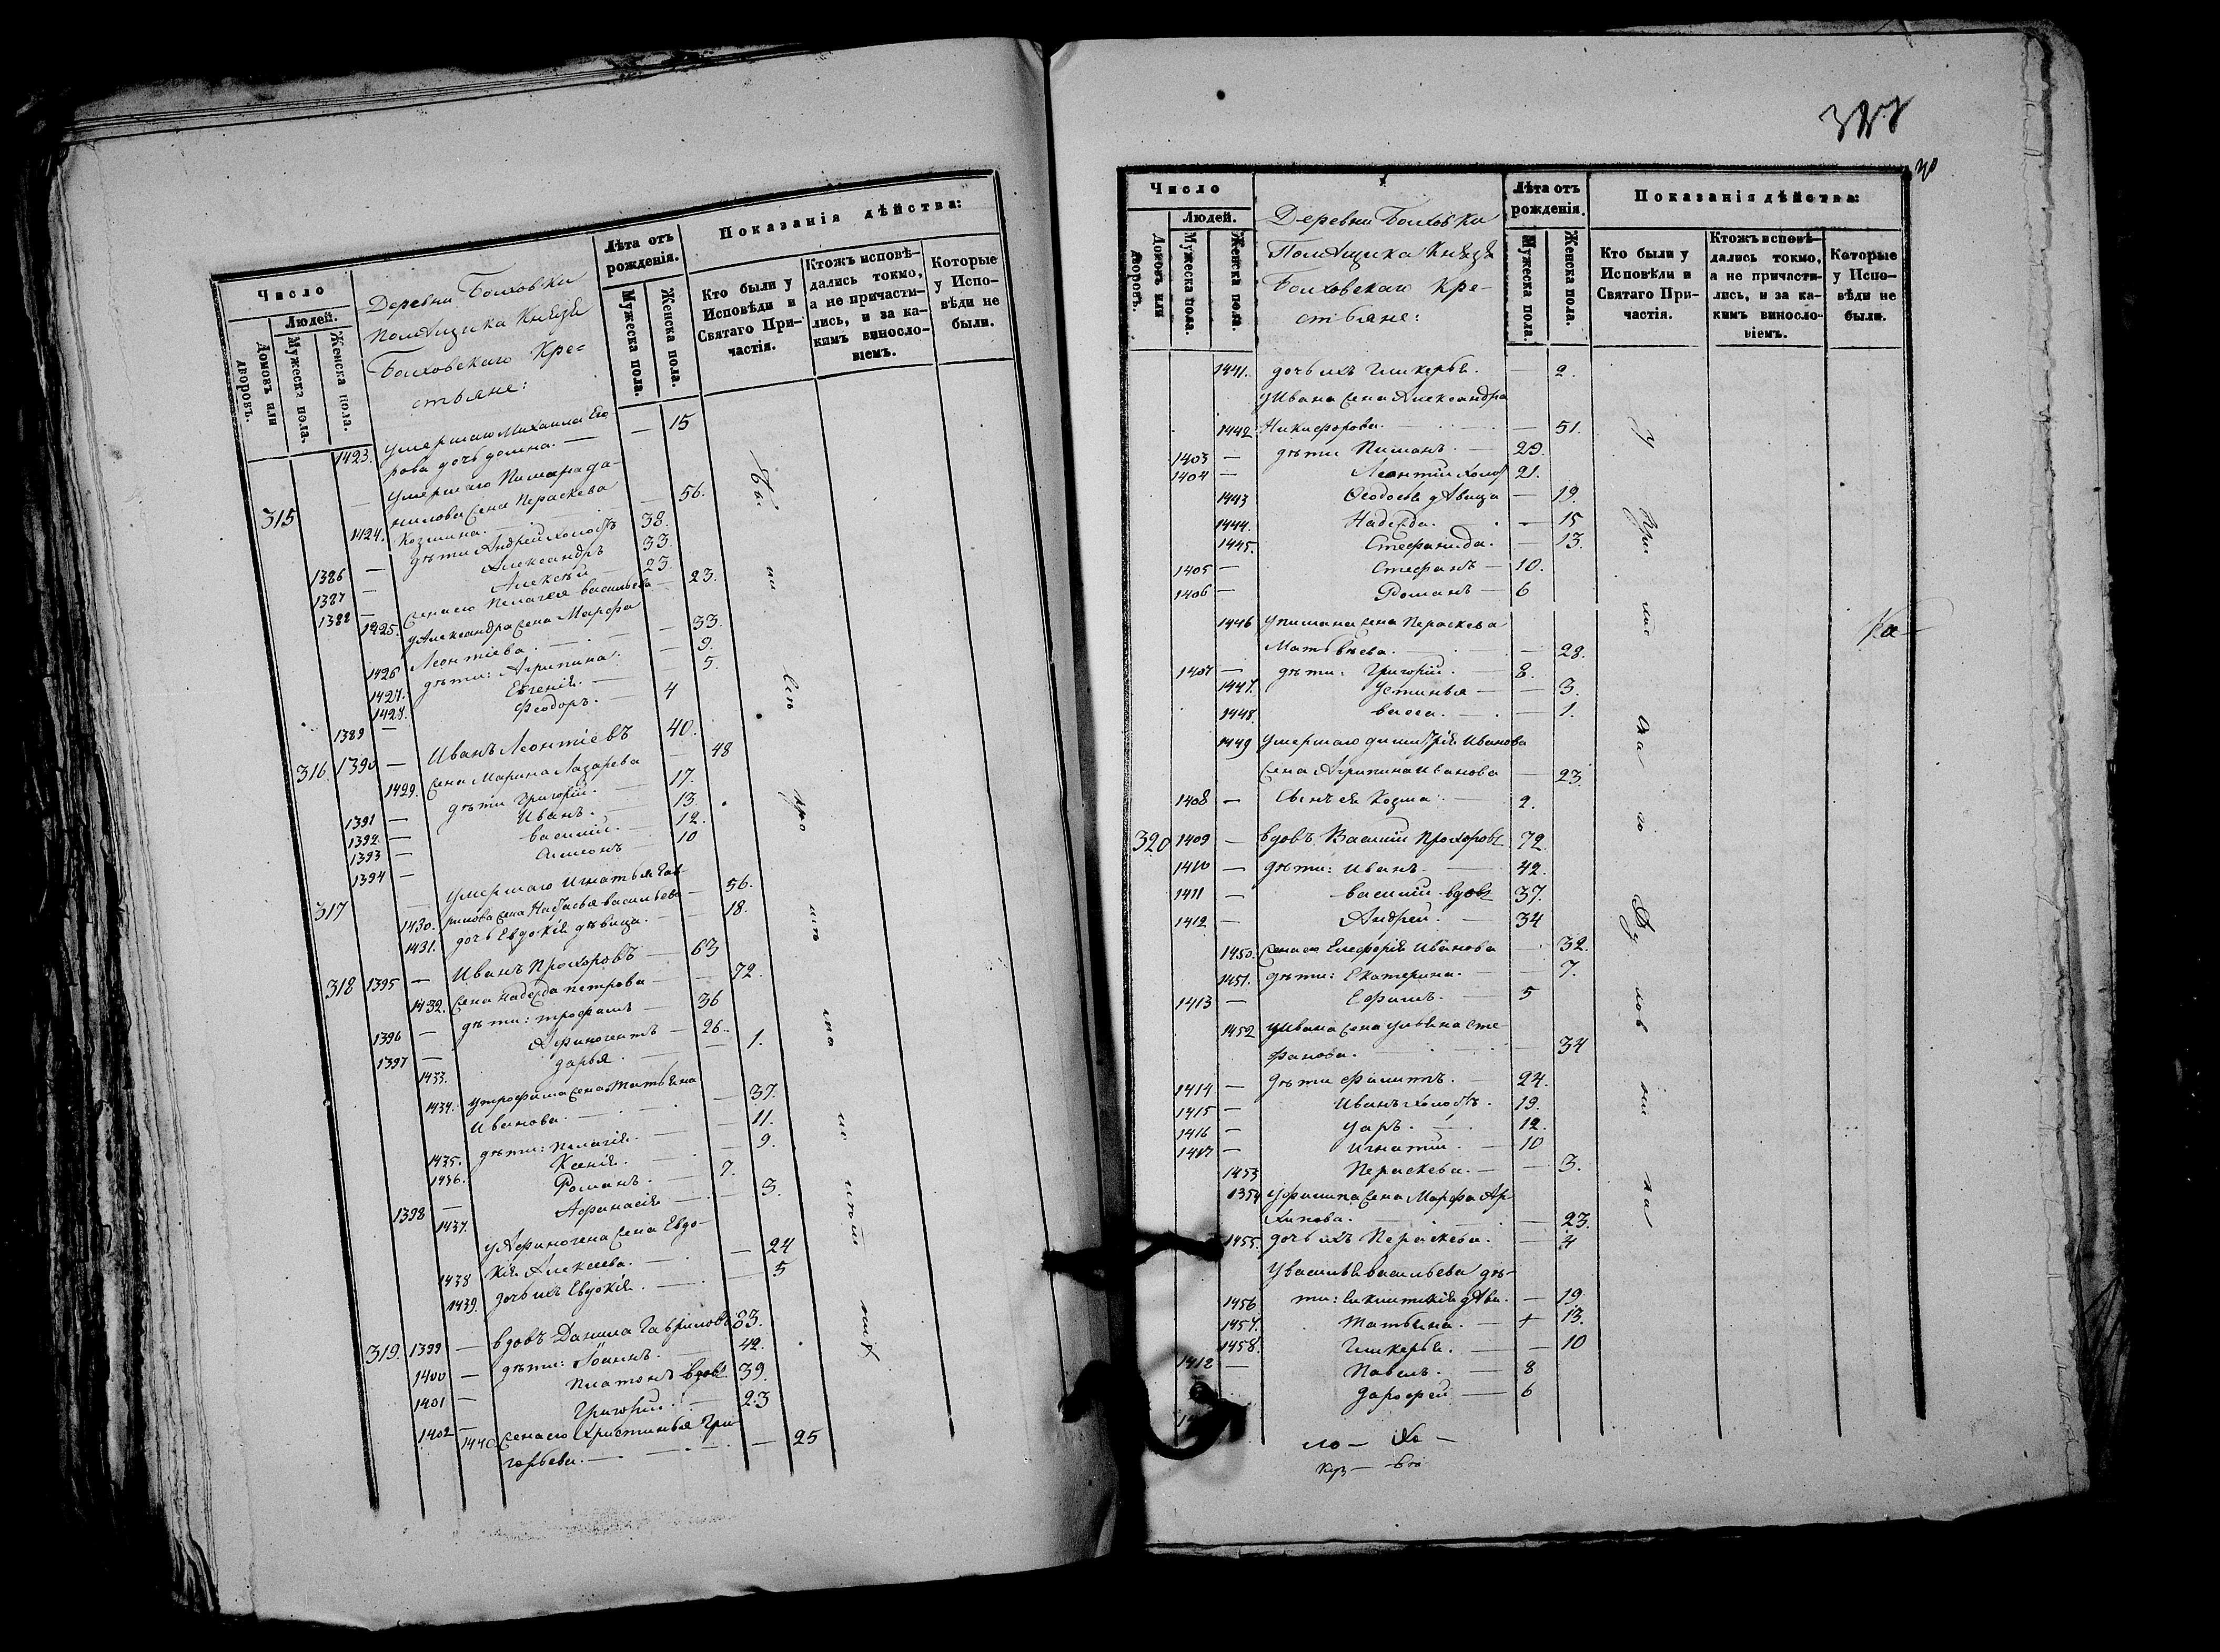 Число
Людей.
Домовъ или дворовъ.
Мужеска пола.
Женска пола.
Деревни Болховки
помѣщика Князя
Болховскаго Кре=
стьяне:
Лѣта отъ рожденія.
Мужеска пола.
Женска пола.
Показанія дѣйства:
Кто были у Исповѣди и Святаго Причастія.
Ктожъ исповѣдались токмо, а не причастились, и за какимъ винословіемъ.
Которые у Исповѣди не были.
умершаго Михаила Его
1423. рова дочь домна. — 15
315 умершаго Пимана да-
нилова жена Параскева
1424. Козмина. — 56.
1386 — дѣти Андрей холостъ 38.
1387 — Александръ 33.
1388 — Алексѣй — 23.
1425. жена его Пелагея васильева — 23.
у Александра жена Марфа
1426 Леонтіева. — 33.
1427. дѣти: Агрипина. — 9.
1428. Евгенія. — 5.
1389 — Феодоръ. — 4
316 1390 — Иванъ Леонтіевъ 40.
1429. жена Марина Лазарева — 48
1391 — дѣти Григорій. — 17.
1392 — Иванъ. — 13.
1393 — василій. — 12.
1394 — Симіонъ — 10
317 — умершаго Игнатья Гав-
1430. рилова жена Настасья васильева — 56.
1431. дочь Евдокія дѣвица. — 18.
318 1395 — Иванъ Прохоровъ — 63
1432. жена надежда петрова — 72.
1396 — дѣти: трофимъ — 36
1397 — Афиногентъ — 26.
1433. дарья. — 1.
1434. у трофима жена Татьяна
Иванова. — 37.
1435. дѣти: Пелагія. — 11.
1436. Ксенія. — 9.
1398 — Романъ. — 7.
1437. Афанасія — 3.
у Афиногена жена Евдо-
1438 кія Алексеева. — 24
1439. дочь ихъ Евдокія. — 5
319. 1399 — вдовъ Данила Гавриловъ 83.
1400 — дѣти: Іоаннъ. — 42.
1401 — Платонъ вдовъ 39.
1402 — Григорій. — 23
1440. жена его Христинья Гри-
горьева. — 25
387
Число
Людей.
Домовъ или дворовъ.
Мужеска пола.
Женска пола.
Деревни Болховки
Помѣщика Князя
Болховскаго Кре-
стьяне:
Лѣта отъ рожденія.
Мужеска пола.
Женска пола.
Показанія дѣйства:
Кто были у Исповѣди и Святаго Причастія.
Ктожъ исповѣдались токмо, а не причастились, и за какимъ винословіемъ.
Которые у Исповѣди не были.
1441. дочь ихъ Гликерья. — 2.
у Ивана жена Александра
1442. Никифорова. — 51.
1403 — дѣти Пиманъ. — 29.
1404 — Леонтій холос 21.
1443 Феодосья дѣвица — 19.
1444. Надежда. — 15
1445. Стефанида. — 13.
1405 — Стефанъ — 10.
1406 — Романъ — 6
1446 у пимана жена Параскева
Матвѣева. — 28.
1407 — дѣти: Григорій. — 8.
1447. Устинья — 3.
1448. васса. — 1.
1449 умершаго димитрія Иванова
жена Агрипина Иванова — 23.
1408 — сынъ ея Козма. — 2.
320 1409 — вдовъ Василій Прохоровъ 72.
1410 — дѣти: Иванъ. — 42.
1411 — василій вдовъ 37.
1412 — Андрей. — 34
1450. жена его Елефорія Иванова — 32.
1451. дѣти: Екатерина. — 7.
1413 — Ефимъ. — 5
1452 у Ивана жена ульяна Сте
фанова. — 34
1414 — дѣти филипъ. — 24.
1415 — Иванъ холостъ. 19.
1416 — уаръ. — 12.
1417 — Игнатій. — 10
1453 Параскева. — 3.
1354 у филипа жена Марфа Ар
хипова. — 23.
1455. дочь ихъ Параскева. — 4
У василья васильева дѣ-
1456 ти: Синклитикія дѣви. — 19.
1457. Татьяна. — 13.
1458. Гликерья. — 10
1412 — Павелъ. — 8
дорофей — 6